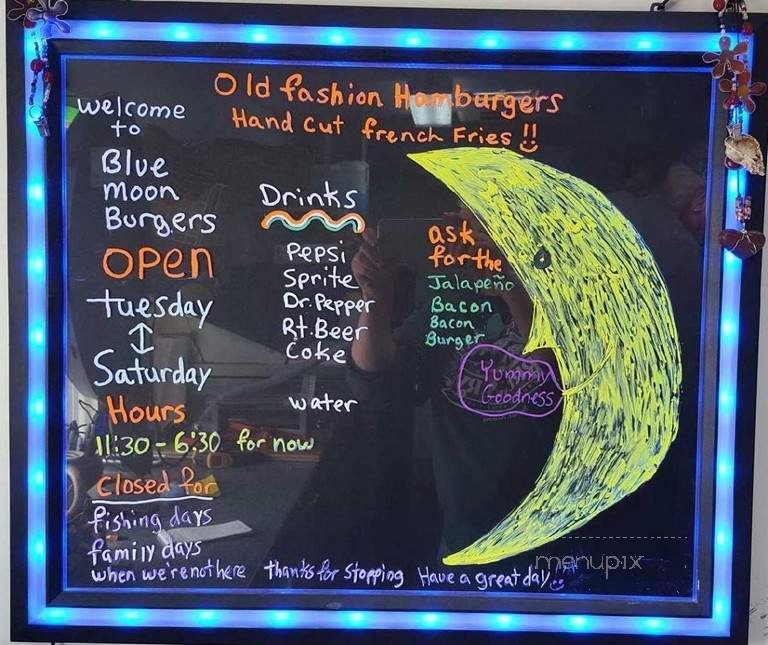 Old fashion Hamburgers
Hand Cut french Fries !!
welcome
to
Blue
moon
Burgers
OPEN
Tuesday
Saturday
Hours
11:30 - 6:30 for now
Closed for
fishing days
family days
when we're not here
Drinks
Pepsi
Sprite
Dr. Pepper
Rt. Beer
Coke
water
ask
for the
Jalapeño
Bacon
Bacon
Burger
Yummy
Goodness
thanks for Stopping
Have a great day!!
menupix